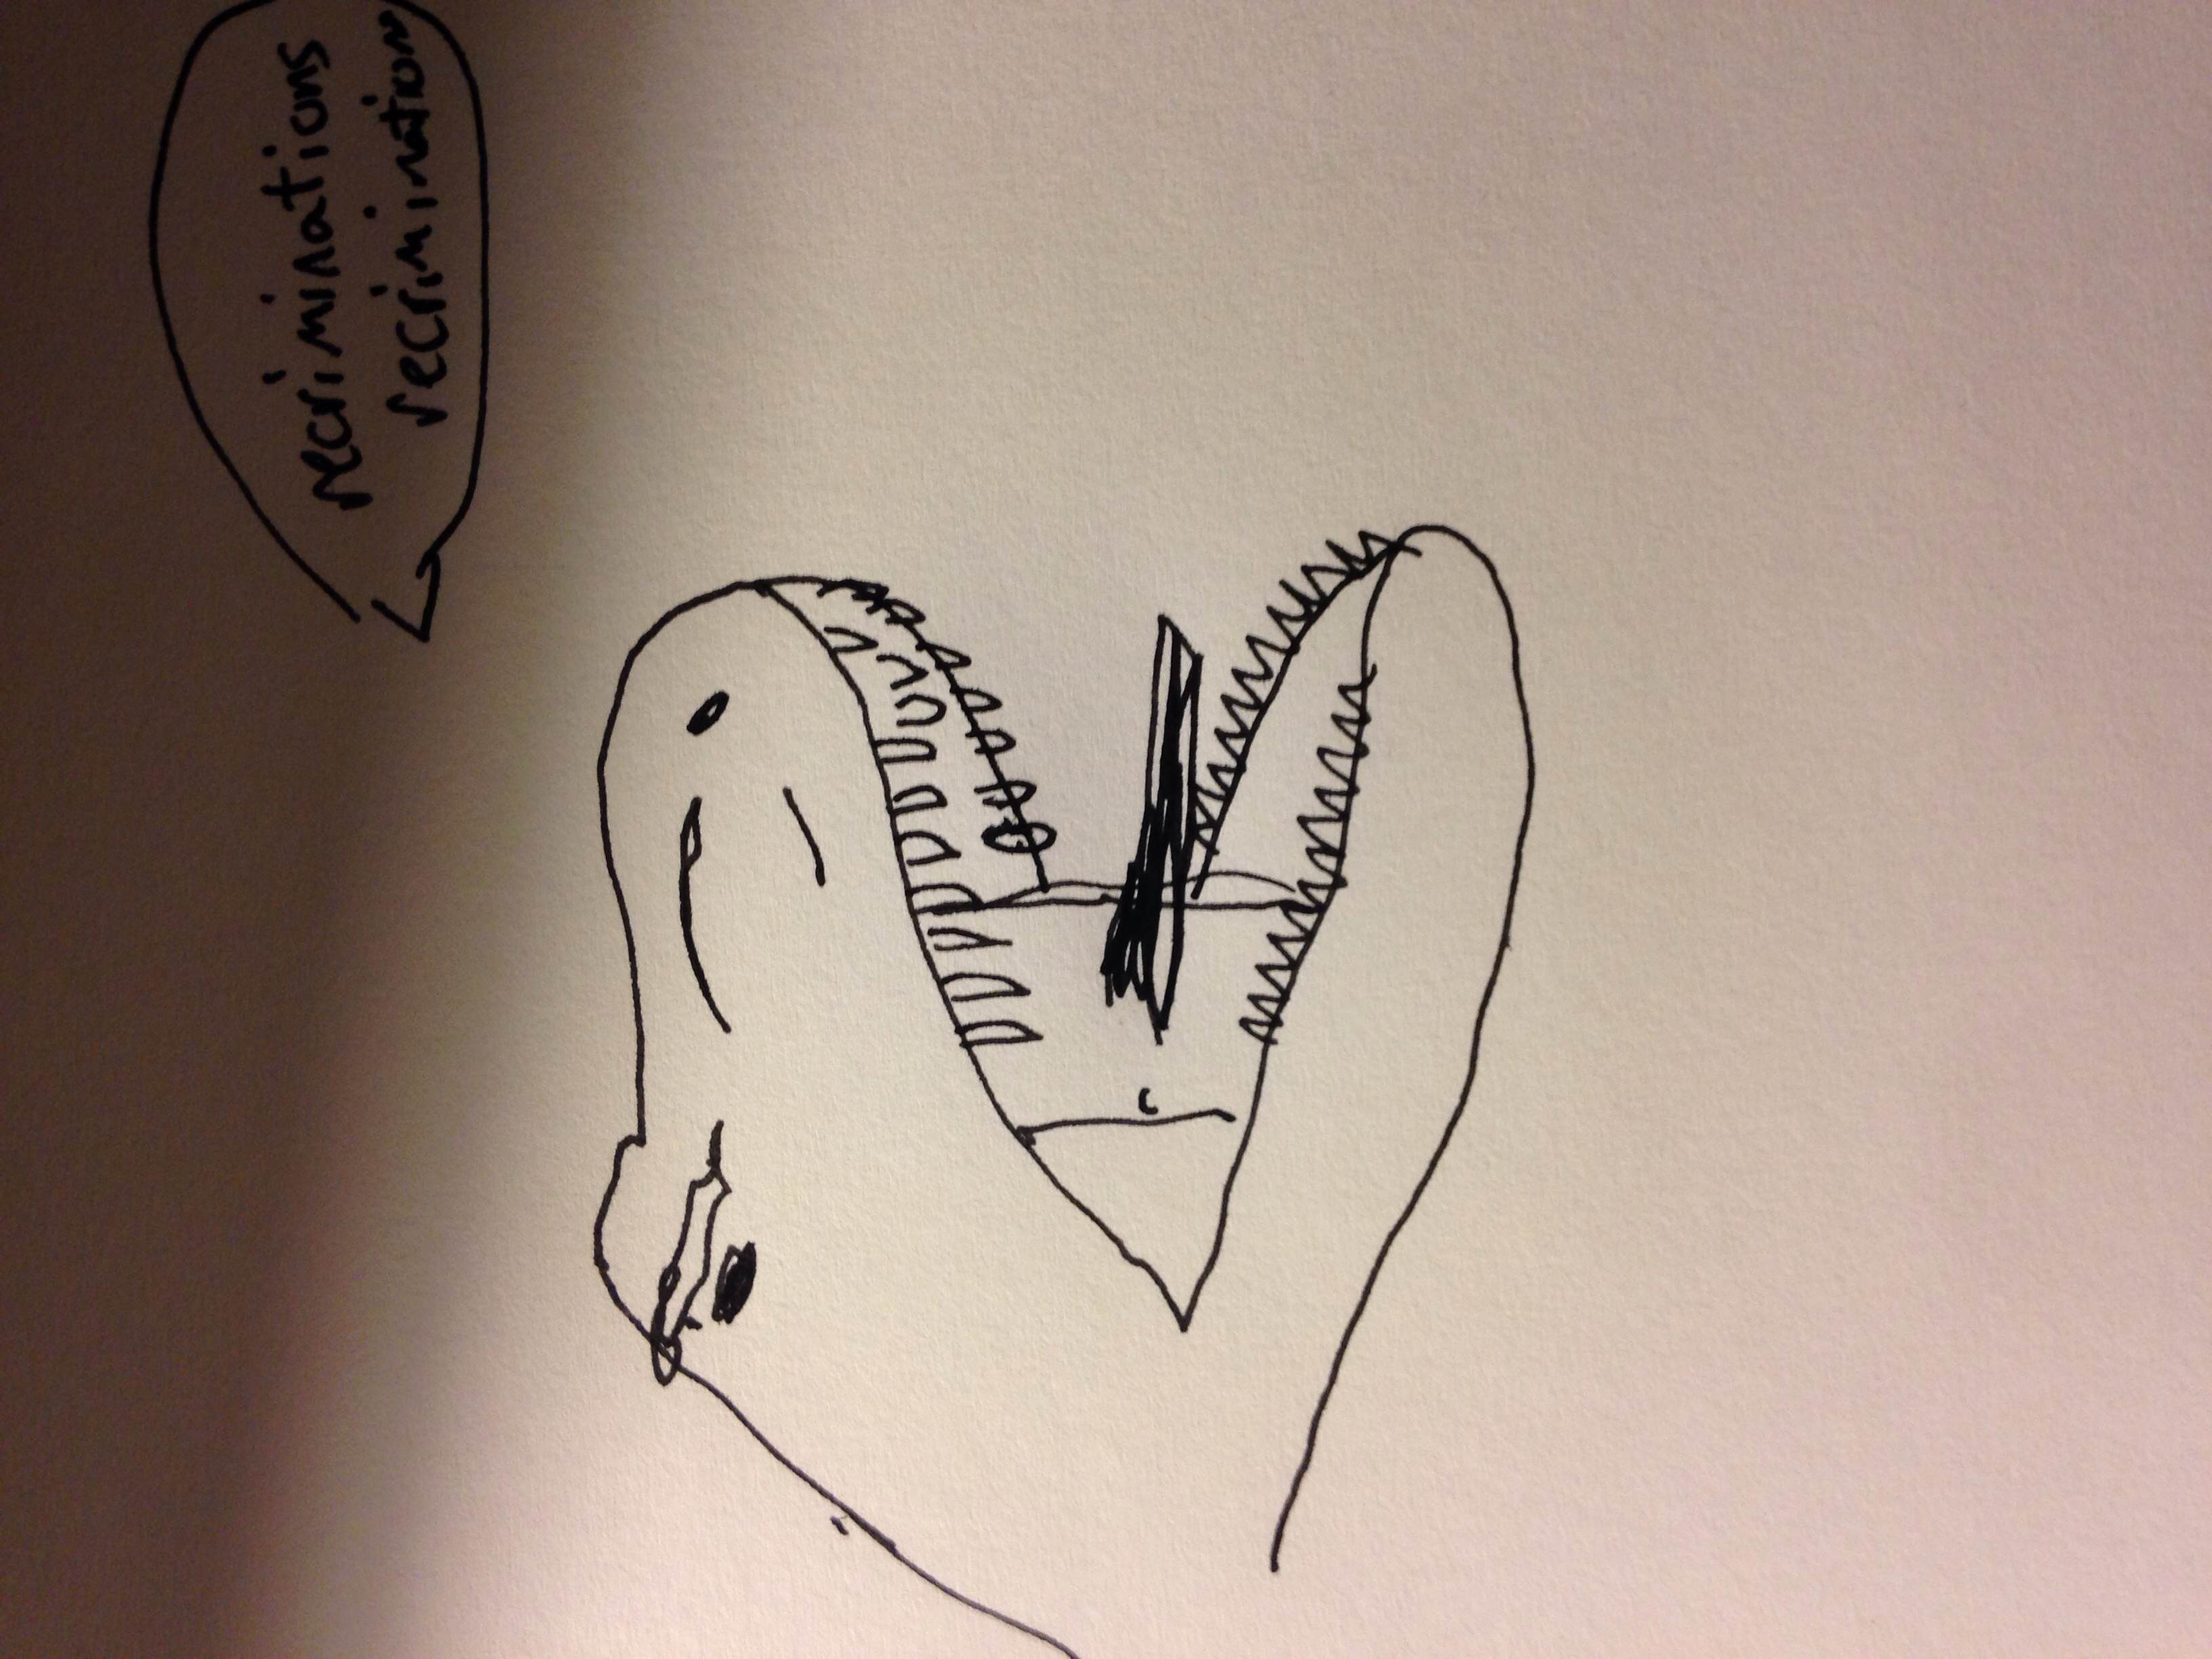 recriminations
recriminations